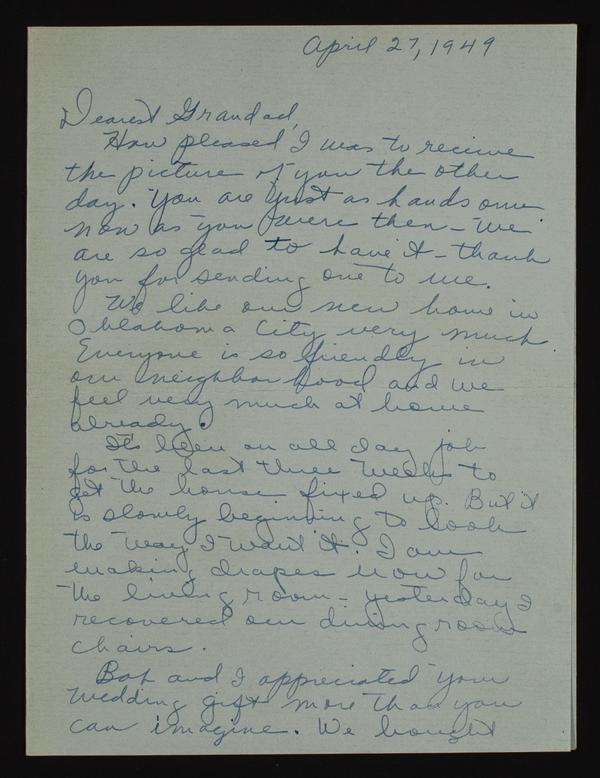 April 27, 1949
Dearest Grandad,
How pleased I was to receive
the picture of you the other
day. You are just as handsome
now as you were then - We
are so glad to have it - thank
you for sending one to me.
We like our new home in
Oklahoma City very much.
Everyone is so friendly in
our neighborhood and we
feel very much at home
already.
It's been an all day job
for the last three weeks to
get the house fixed up. But it
is slowly beginning to look
the way I want it. I am
making drapes now for
the living room - yesterday I
recovered our dining room
chairs.
Bob and I appreciated your
wedding gift more than you
can imagine. We bought